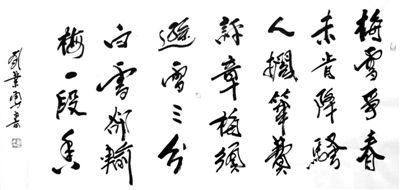 梅雪爭春
未肯降騷
人擱筆費
評章梅須
遜雪三分
白雪卻輸
梅一段香